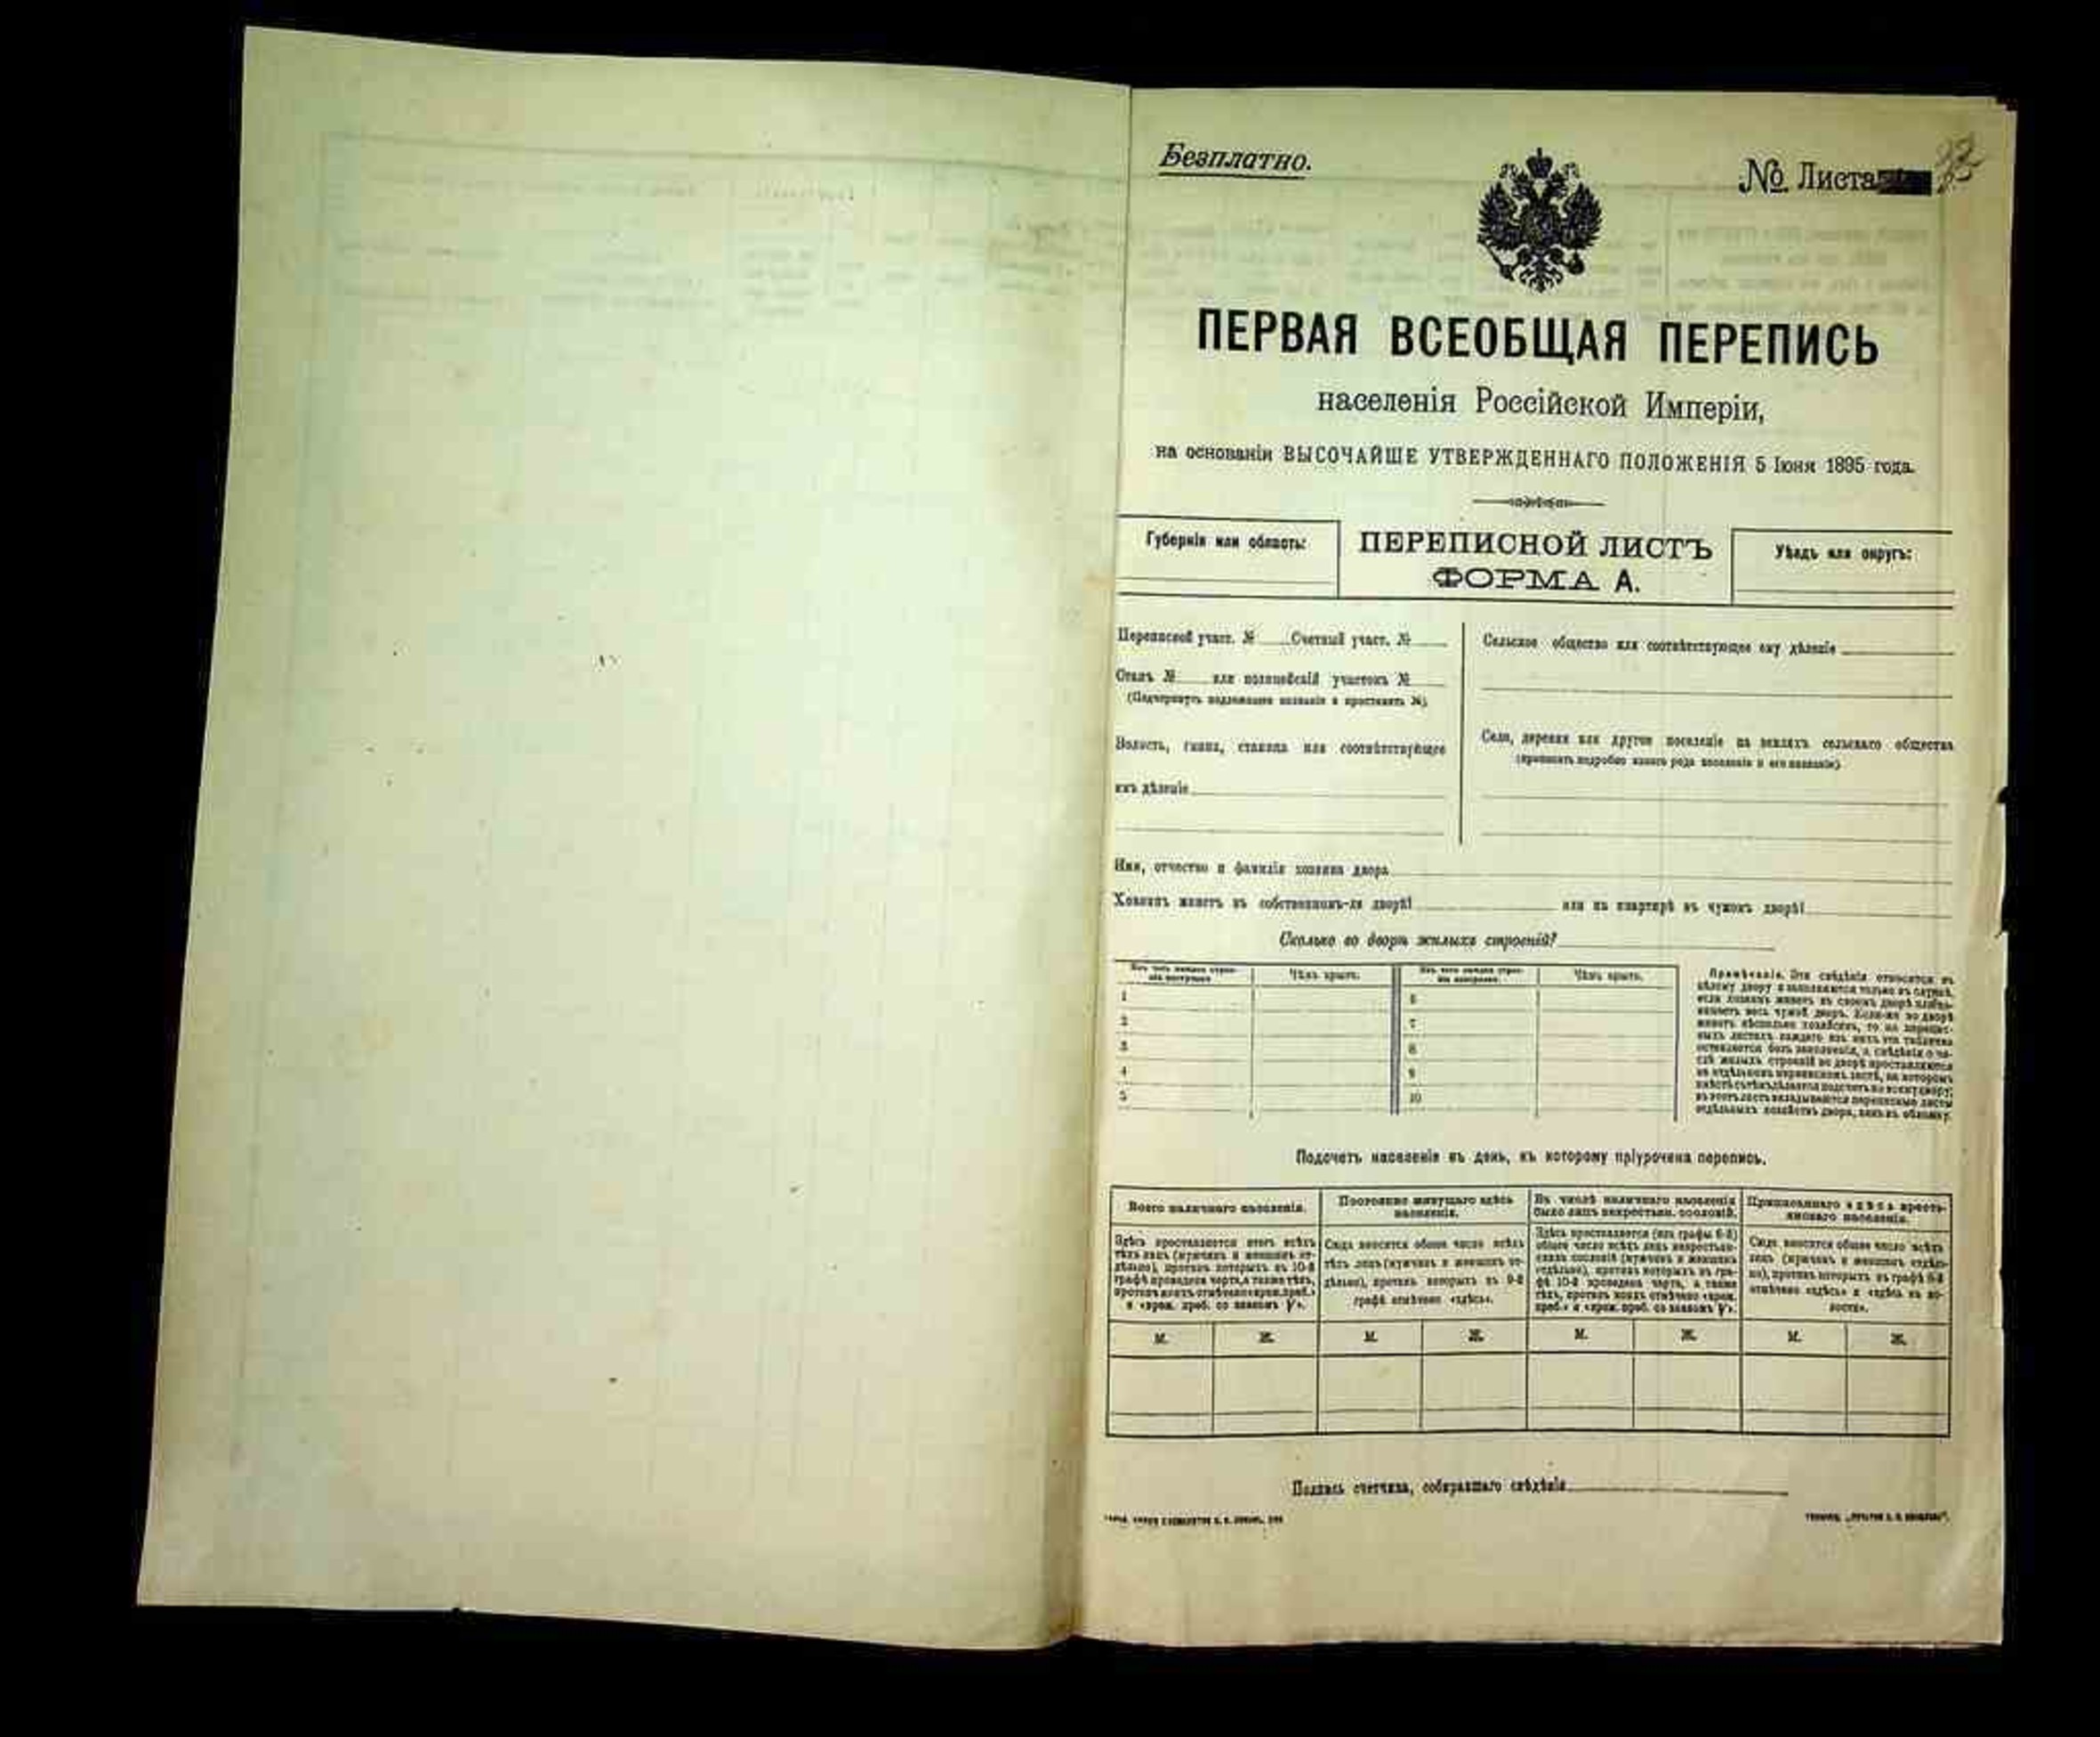 Безплатно.
№ Листа
ПЕРВАЯ ВСЕОБЩАЯ ПЕРЕПИСЬ
населенія Россійской Имперіи,
на основаніи ВЫСОЧАЙШЕ УТВЕРЖДЕННАГО ПОЛОЖЕНІЯ 5 Іюня 1895 года.
Губернія или область:
ПЕРЕПИСНОЙ ЛИСТЪ
ФОРМА А.
Уѣздъ или округъ:
Переписной участ. № Счетный участ. №
Станъ № или полицейскій участокъ №
(Подчеркнуть надлежащее названіе и проставить №).
Волость, гмина, станица или соотвѣтствующее
имъ дѣленіе
Сельское общество или соотвѣтствующее ему дѣленіе
Село, деревня или другое поселеніе на земляхъ сельскаго общества
(прописать подробно какого рода поселеніе и его названіе)
Имя, отчество и фамилія хозяина двора
Хозяинъ живетъ въ собственномъ-ли дворѣ? или на квартирѣ въ чужомъ дворѣ?
Сколько во дворѣ жилыхъ строеній?
Изъ чего каждое строе-
ніе построено
Чѣмъ крыто.
Изъ чего каждое строе-
ніе построено.
Чѣмъ крыто.
1 6
2 7
3 8
4 9
5 10
Примѣчаніе. Эти свѣдѣнія относятся къ
цѣлому двору и заполняются только въ случаѣ,
если хозяинъ живетъ въ своемъ дворѣ или за-
нимаетъ весь чужой дворъ. Если-же во дворѣ
живетъ нѣсколько хозяйствъ, то на перепис-
ныхъ листахъ каждаго изъ нихъ эта табличка
оставляется безъ заполненія, а свѣдѣнія о чи-
слѣ жилыхъ строеній во дворѣ проставляются
на отдѣльномъ переписномъ листѣ, на которомъ
вмѣстѣ съ тѣмъ дѣлается подсчетъ по всему двору;
въ этотъ листъ вкладываются переписные листы
отдѣльныхъ хозяйствъ двора, какъ въ обложку.
Подсчетъ населенія въ день, къ которому пріурочена перепись.
Всего наличнаго населенія.
Постоянно живущаго здѣсь
населенія.
Въ числѣ наличнаго населенія
было лицъ некрестьян. сословій.
Приписаннаго здѣсь кресть-
янскаго населенія.
Здѣсь проставляется итогъ всѣхъ
тѣхъ лицъ (мужчинъ и женщинъ от-
дѣльно), противъ которыхъ въ 10-й
графѣ проведена черта, а также тѣхъ,
противъ коихъ отмѣчено «врем. преб.»
и «врем. преб. со знакомъ V».
Сюда вносится общее число всѣхъ
тѣхъ лицъ (мужчинъ и женщинъ от-
дѣльно), противъ которыхъ въ 9-й
графѣ отмѣчено «здѣсь».
Здѣсь проставляется (изъ графы 6-й)
общее число всѣхъ лицъ некрестьян-
скихъ сословій (мужчинъ и женщинъ
отдѣльно), противъ которыхъ въ гра-
фѣ 10-й проведена черта, а также
тѣхъ, противъ коихъ отмѣчено «врем.
преб.» и «врем. преб. со знакомъ V».
Сюда вносится общее число всѣхъ
лицъ (мужчинъ и женщинъ отдѣль-
но), противъ которыхъ въ графѣ 8-й
отмѣчено «здѣсь» и «здѣсь въ во-
лости».
М. Ж. М. Ж. М. Ж. М. Ж.
Подпись счетчика, собиравшаго свѣдѣнія